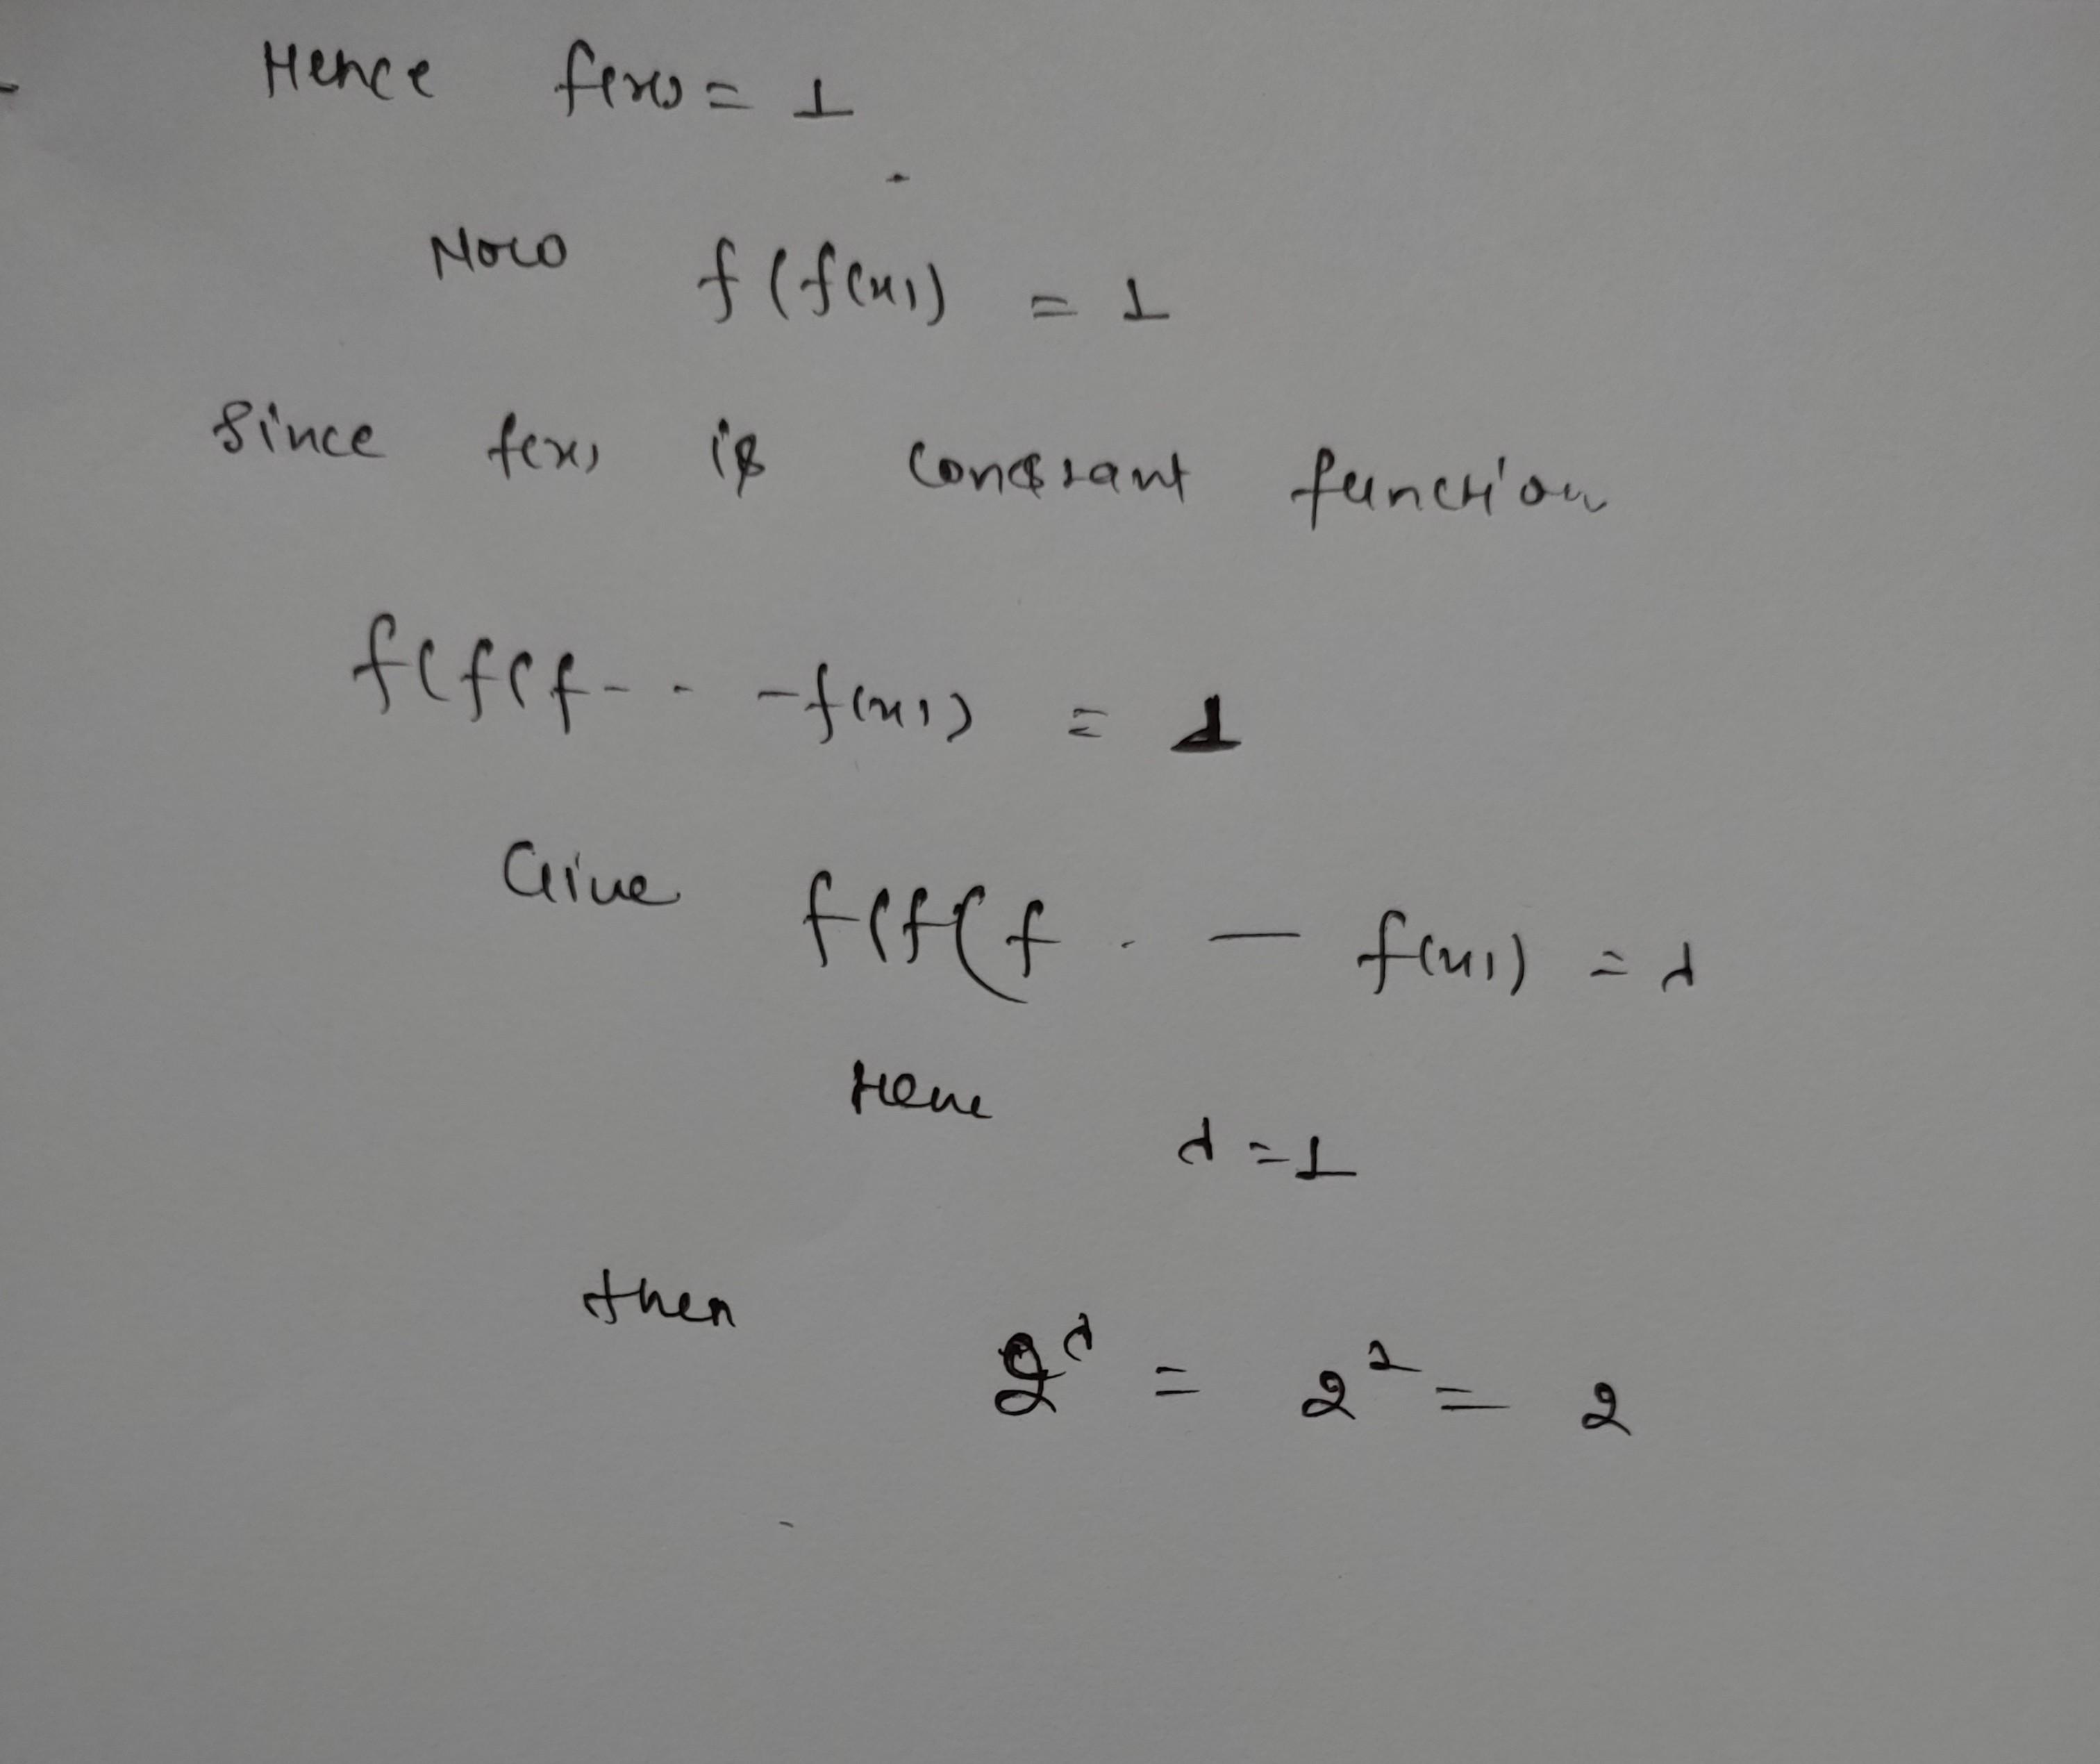 Hence f(x) = 1
Now f(f(x)) = 1
Since f(x) is constant function
f(f(f - - - f(x)) = 1
Give f(f(f - — f(x)) = λ
Hence λ = 1
then 2^λ = 2^1 = 2